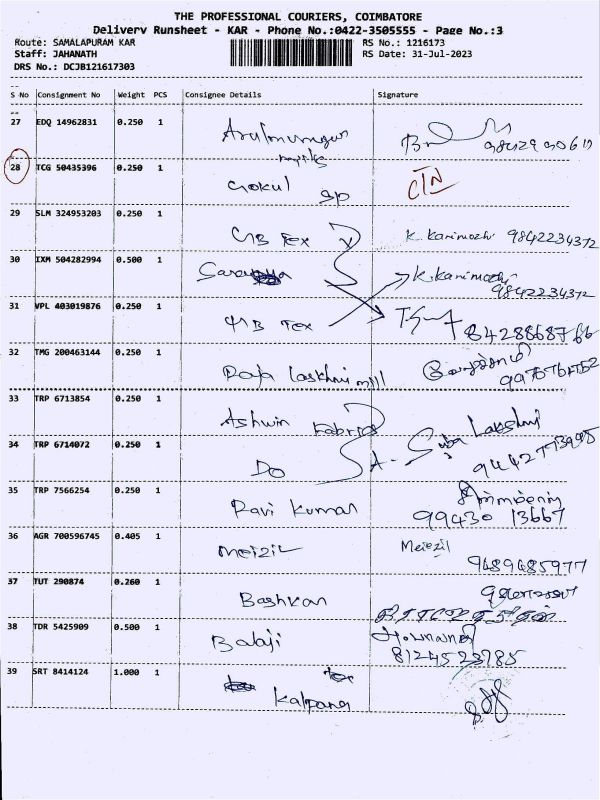 THE PROFESSIONAL COURIERS, COIMBATORE
Delivery Runsheet - KAR - Phone No.:0422-3505555 - Page No.:3
Route: SAMALAPURAM KAR RS No.: 1216173
Staff: JAHANATH RS Date: 31-Jul-2023
DRS No.: DCJB121617303
S No Consignment No Weight PCS Consignee Details Signature
27 EDQ 14962831 0.250 1 Arulmurugan
mills
28 TCG 50435396 0.250 1 Gokul sp CTN
29 SLM 324953203 0.250 1 Tex K. Kanimozhi 9842234372
30 IXM 504282994 0.500 1 K. Kanimozhi
9842234372
31 VPL 403019876 0.250 1 Tex 8428868766
32 TMG 200463144 0.250 1 Raja laskhmi mill
33 TRP 6713854 0.250 1 Ashwin Fabrics
34 TRP 6714072 0.250 1 Do A. Suba Lakshmi
35 TRP 7566254 0.250 1 Ravi Kumar
99430 13667
36 AGR 700596745 0.405 1 Meizil Meiezil
9489485977
37 TUT 290874 0.260 1 Bashkar
38 TDR 5425909 0.500 1 Balaji
8124523785
39 SRT 8414124 1.000 1 Kalpana